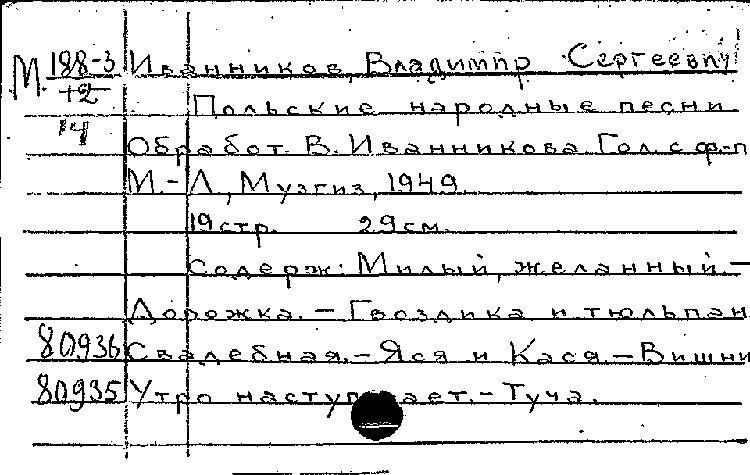 М. 188-3 Иванников, Владимир Сергеевич
12 Польские народные песни
14 Обработ. В. Иванникова. Гол. с ф-п
М.-Л., Музгиз, 1949.
19 стр. 29 см.
Содерж: Милый, желанный.-
Дорожка. - Гвоздика и тюльпан
80936 Свадебная.-Яся и Кася.-Вишни
80935 Утро наступает.-Туча.